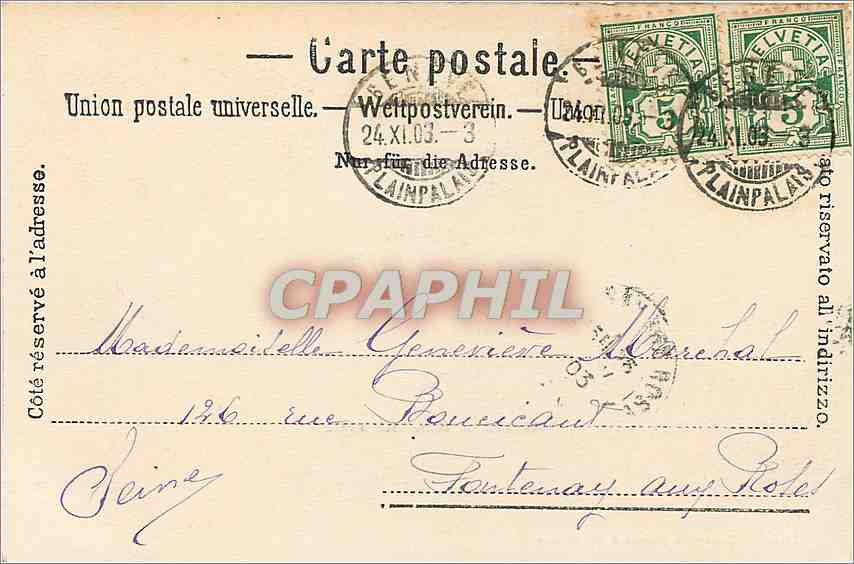 — Carte postale. —
Union postale universelle. — Weltpostverein. — Union
Nur für die Adresse.
Côté réservé à l'adresse.
lato riservato all'indirizzo.
FRANCO
HELVETIA
5
FRANCO
HELVETIA
5
GENÈVE
24.XI.03.–3
PLAINPALAIS
24.XI.03.
PLAINPALAIS
GENÈVE
24.XI.03. 3
PLAINPALAIS
03
CPAPHIL
Mademoiselle Geneviève Marechal
126 rue Boucicaut
Fontenay aux Roses
Seine